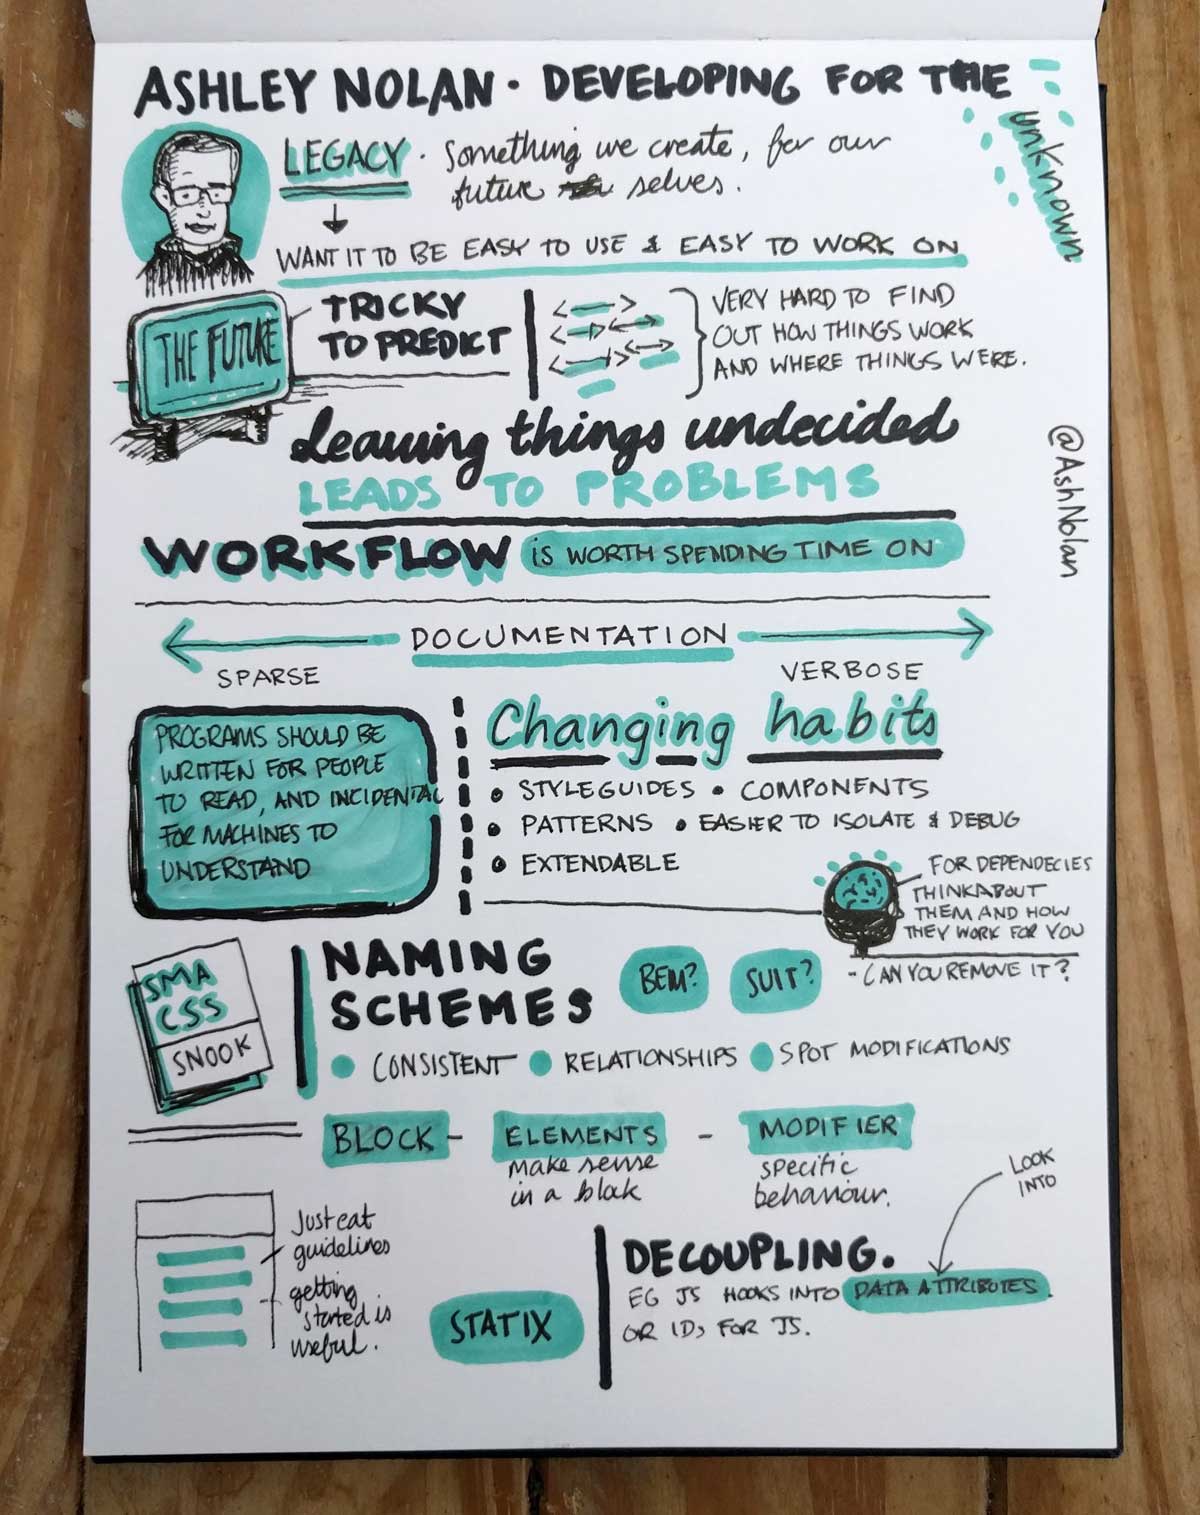 ASHLEY NOLAN · DEVELOPING FOR THE
unknown
LEGACY · Something we create, for our
future selves.
WANT IT TO BE EASY TO USE & EASY TO WORK ON
THE FUTURE
TRICKY
TO PREDICT
VERY HARD TO FIND
OUT HOW THINGS WORK
AND WHERE THINGS WERE.
Leaving things undecided
LEADS TO PROBLEMS
@AshNolan
WORKFLOW IS WORTH SPENDING TIME ON
DOCUMENTATION
SPARSE
VERBOSE
PROGRAMS SHOULD BE
WRITTEN FOR PEOPLE
TO READ, AND INCIDENTAL
FOR MACHINES TO
UNDERSTAND
Changing habits
• STYLEGUIDES • COMPONENTS
• PATTERNS • EASIER TO ISOLATE & DEBUG
• EXTENDABLE
FOR DEPENDECIES
THINK ABOUT
THEM AND HOW
THEY WORK FOR YOU
- CAN YOU REMOVE IT?
SMA
CSS
SNOOK
NAMING
SCHEMES
BEM?
SUIT?
CONSISTENT
RELATIONSHIPS
SPOT MODIFICATIONS
BLOCK - ELEMENTS - MODIFIER
make sense
in a block
specific
behaviour.
LOOK
INTO
Just eat
guidelines
getting
started is
useful.
STATIX
DECOUPLING.
EG JS HOOKS INTO DATA ATTRIBUTES.
OR IDs FOR JS.